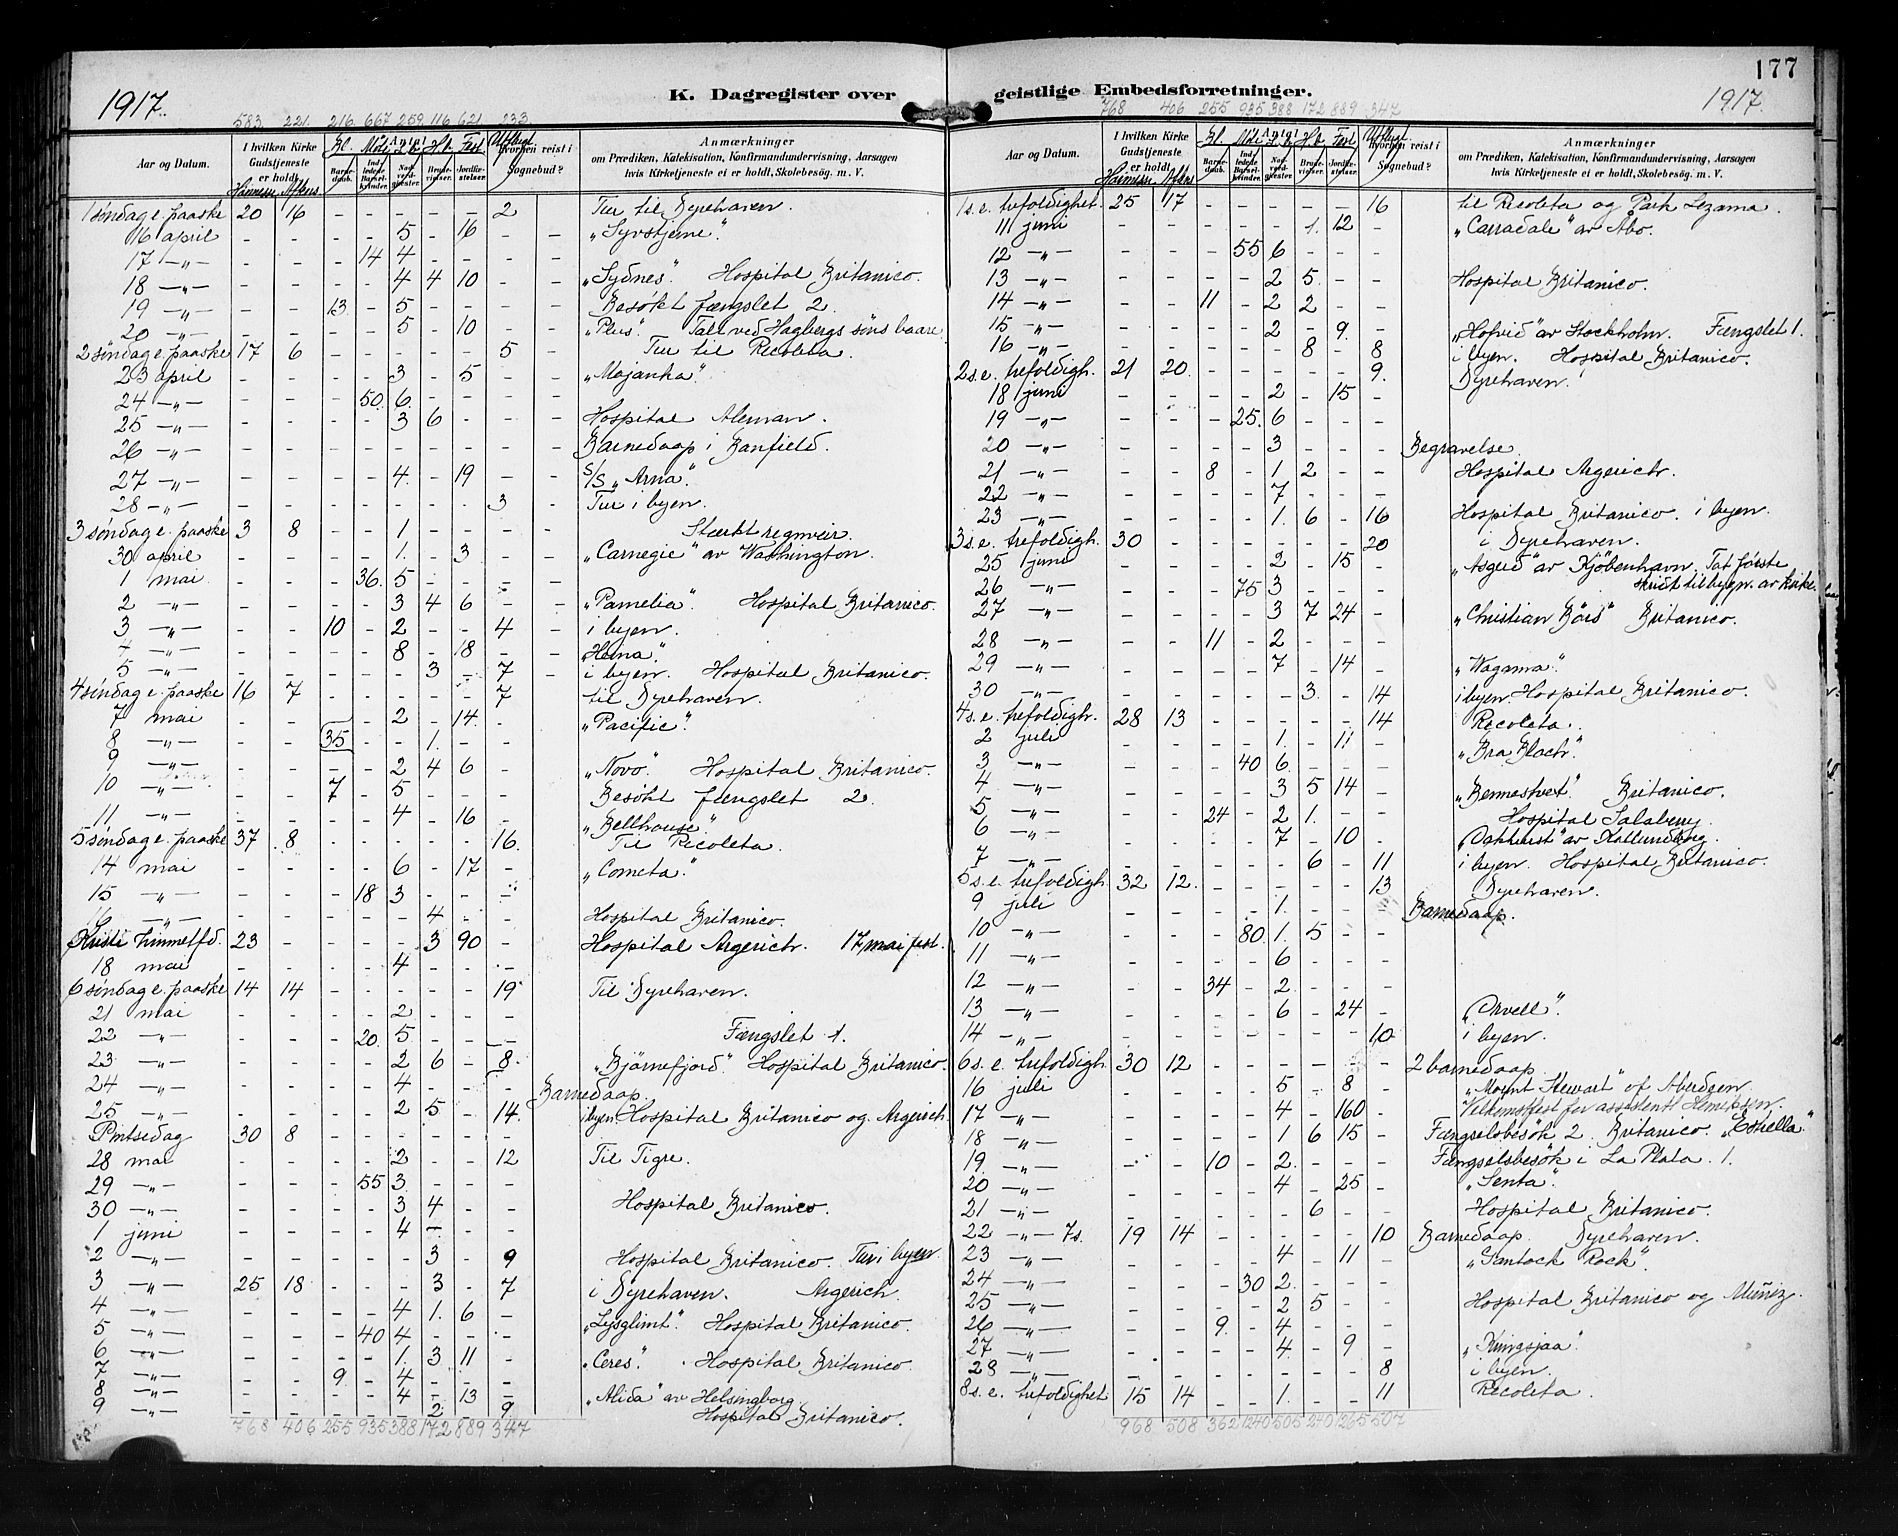 177
1917.
K. Dagregister over
geistlige Embedsforretninger.
1917.
583. 221. 216. 667 259. 116. 621. 233
768 406 255 935 388 172 889 347
Aar og Datum. I hvilken Kirke Gudstjeneste er holdt. Barnedaab. Indledede Barselkvinder. Nadverdgjester Brudevielser. Jordfæstelser. Hvorhen reist i Sognebud? Anmærkninger om Prædiken, Katekisation, Konfirmandundervisning, Aarsagen hvis Kirketjeneste ei er holdt, Skolebesøg. m. V.
1 söndag e. paaske 20 16 - - - - - 2 Tur til Dyrehaven.
16 april - - - - 5 - 16 - - „Syvstjerne"
17 -„- - - - 14 4 - - - -
18 -„- - - - - 4 4 10 - - „Sydnes". Hospital Britanico.
19 -„- - - 13 - 5 - - - - Besökt fængslet 2.
20 -„- - - - - 5 - 10 - - „Plus". Tall ved Hagbergs söns baare
2 söndag e. paaske 17 6 - - - - - 5 - Tur til Recoleta.
23 april - - - - 3 - 5 - - „Mojanka"
24 -„- - - - 50. 6 - - - -
25 -„- - - - - 3 6 - - - Hospital Aleman.
26 -„- - - - - - - - - - Barnedaap i Banfield.
27 -„- - - - - 4. - 19 - - S/S „Arna".
28 -„- - - - - - - - 3 - Tur i byen.
3 söndag e. paaske 3 8 - - 1 - - - - Stærkt regnveir.
30 april - - - - 1. - 3 - - „Carnegie" av Washington.
1 mai - - - 36. 5 - - - -
2 -„- - - - - 3 4 6 - - „Pamelia". Hospital Britanico.
3 -„- - - 10 - 2 - - 4 - i byen.
4 -„- - - - - 8 - 18 - -
5 -„- - - - - - 3 - 7 - i byen. Hospital Britanico.
4 söndag e. paaske 16 7 - - - - - 7 til Dyrehaven.
7 mai - - - - 2 - 14. - „Pacific".
8 -„- - - 35 - - 1. - -
9 -„- - - - - 2 4 6 - „Novo". Hospital Britanico.
10 -„- - - 7 - 5 - - - Besökt fængslet 2.
11 -„- - - - - 4 - 16 - „Bellhouse".
5 söndag e. paaske 37 8 - - - - - 16. Til Recoleta.
14 mai - - - - 6 - 17 - „Cometa".
15 „ - - - 18 3 - - -
16 -„- - - - - - 4 - - Hospital Britanico.
Kristi Himmelfd. 23 - - - - 3 90 - Hospital Argerich. 17 mai fest.
18 mai - - - - 4 - - -
6 söndag e. paaske 14 14 - - - - - 19 Til Dyrehaven.
21 mai - - - - 2 - - -
22 -„- - - - 20. 5 - - - Fængslet 1.
23 -„- - - - - 2 6 - 8. „Björnefjord". Hospital Britanico.
24 -„- - - - - 4 - - - Barnedaap.
25 -„- - - - - 2 5 - 14. i byen. Hospital Britanico og Argerich
Pintsedag 30 8 - - - - - -
28 mai - - - - 2 - - 12 Til Tigre.
29 -„- - - - 55 3 - - -
30 -„- - - - - 3 4 - - Hospital Britanico.
1 juni - - - - 4 - - -
2 -„- - - - - - 3 - 9 Hospital Britanico. Tur i byen.
3 -„- 25 18 - - - 3 - 7 i Dyrehaven. Argerich.
4 -„- - - - - 4 1. 6 - „Lysglimt". Hospital Britanico.
5 -„- - - - 40 4 - - -
6 -„- - - - - 1. 3 11 - „Ceres". Hospital Britanico.
7 -„- - - 9 - 4 - - -
8 -„- - - - - 4 - 13 - „Alida" av Helsingborg.
9 -„- - - - - - 2 - 9 Hospital Britanico.
768 406 255 935 388 172 889 347
Aar og Datum. I hvilken Kirke Gudstjeneste er holdt. Barnedaab. Indledede Barselkvinder. Nadverdgjester Brudevielser. Jordfæstelser. Hvorhen reist i Sognebud? Anmærkninger om Prædiken, Katekisation, Konfirmandundervisning, Aarsagen hvis Kirketjeneste ei er holdt, Skolebesøg. m. V.
1 s. e. trefoldighet. 25 17 - - - - - 16 til Recoleta og Park Lezama.
11 juni - - - - - 1. 12 - „Carradale" av Åbo.
12 -„- - - - 55 6 - - -
13 -„- - - - - 2 5 - - Hospital Britanico.
14 -„- - - 11 - 2 2 - -
15 -„- - - - - 2 - 9. - „Hofvid" av Stockholm. Fængslet 1.
16 -„- - - - - - 8 - 8 i byen. Hospital Britanico.
2 s. e. trefoldigh. 21 20 - - - - - 9. Dyrehaven.
18 juni - - - - 2 - 15 -
19 -„- - - - 25. 6 - - -
20 -„- - - - - 3 - - - Begravelse.
21 „ - - 8 - 1 2 - - Hospital Argerich.
22 -„- - - - - 7 - - -
23 -„- - - - - 1. 6 - 16 Hospital Britanico. i byen.
3 s. e. trefoldigh. 30 - - - - - - 20 i Dyrehaven.
25 juni - - - - 2 - 15 - av Kjöbenhavn. Tat första
26 -„- - - - 75 3 - - - skridt til bygn. av kirke.
27 -„- - - - - 3 7 24 - „Christian Börs" Britanico.
28 -„- - - 11 - 2 - - -
29 -„- - - - - 7 - 14 - „Wagama".
30 -„- - - - - - 3. - 14 i byen. Hospital Britanico.
4 s. e. trefoldigh. 28 13 - - - - - 14 Recoleta.
2 juli - - - - 1. - 11 -
3 -„- - - - 40 6 - - -
4 -„- - - - - 3 5 14 - „Bennestvet". Britanico.
5 -„- - - 24 - 2 1. - - Hospital Salaberry
6 -„- - - - - 7 - 10 - av Kallundborg.
7 -„- - - - - - 6 - 11 i byen. Hospital Britanico.
5 s. e. trefoldigh. 32 12. - - - - - 13 Dyrehaven.
9 juli - - - - 1. - - - Barnedaap.
10 -„- - - - 80. 1. 5 - -
11 -„- - - - - 6 - - -
12 -„- - - 34 - 2 - - -
13 -„- - - - - 6 - 24 - „Orvell".
14 -„- - - - - - - - 10 i byen.
6 s. e. trefoldigh. 30 12 - - - - - - 2 barnedaap.
16 juli - - - - 5 - 8 - „Mount Stewart" of Aberdeen.
17 -„- - - - - 4 - 160 - Velkomstfest for assistent Henriksen.
18 „ - - - - 1 6 15 - Fængselsbesök 2. Britanico. „Estrella."
19 -„- - - 10 - 2 - - - Fængselsbesök i La Plata 1.
20 -„- - - - - 4 - 25 - „Senta".
21 -„- - - - - - 6 - - Hospital Britanico.
22 -„- 7 s. 19 14 - - - - - 10 Barnedaap. Dyrehaven.
23 -„- - - - - 4 - 11 -
24 -„- - - - 30 2 - - -
25 -„- - - - - 2 5 - - Hospital Britanico og Muñiz.
26 -„- - - 9 - 4 - - -
27 -„- - - - - 4 - 9 - „Kungsjaa".
28 -„- - - - - - - - 8 i byen.
8 s. e. trefoldighet 15 14 - - 1. - - 11 Recoleta.
968 508 362 1240 505 240 1265 507